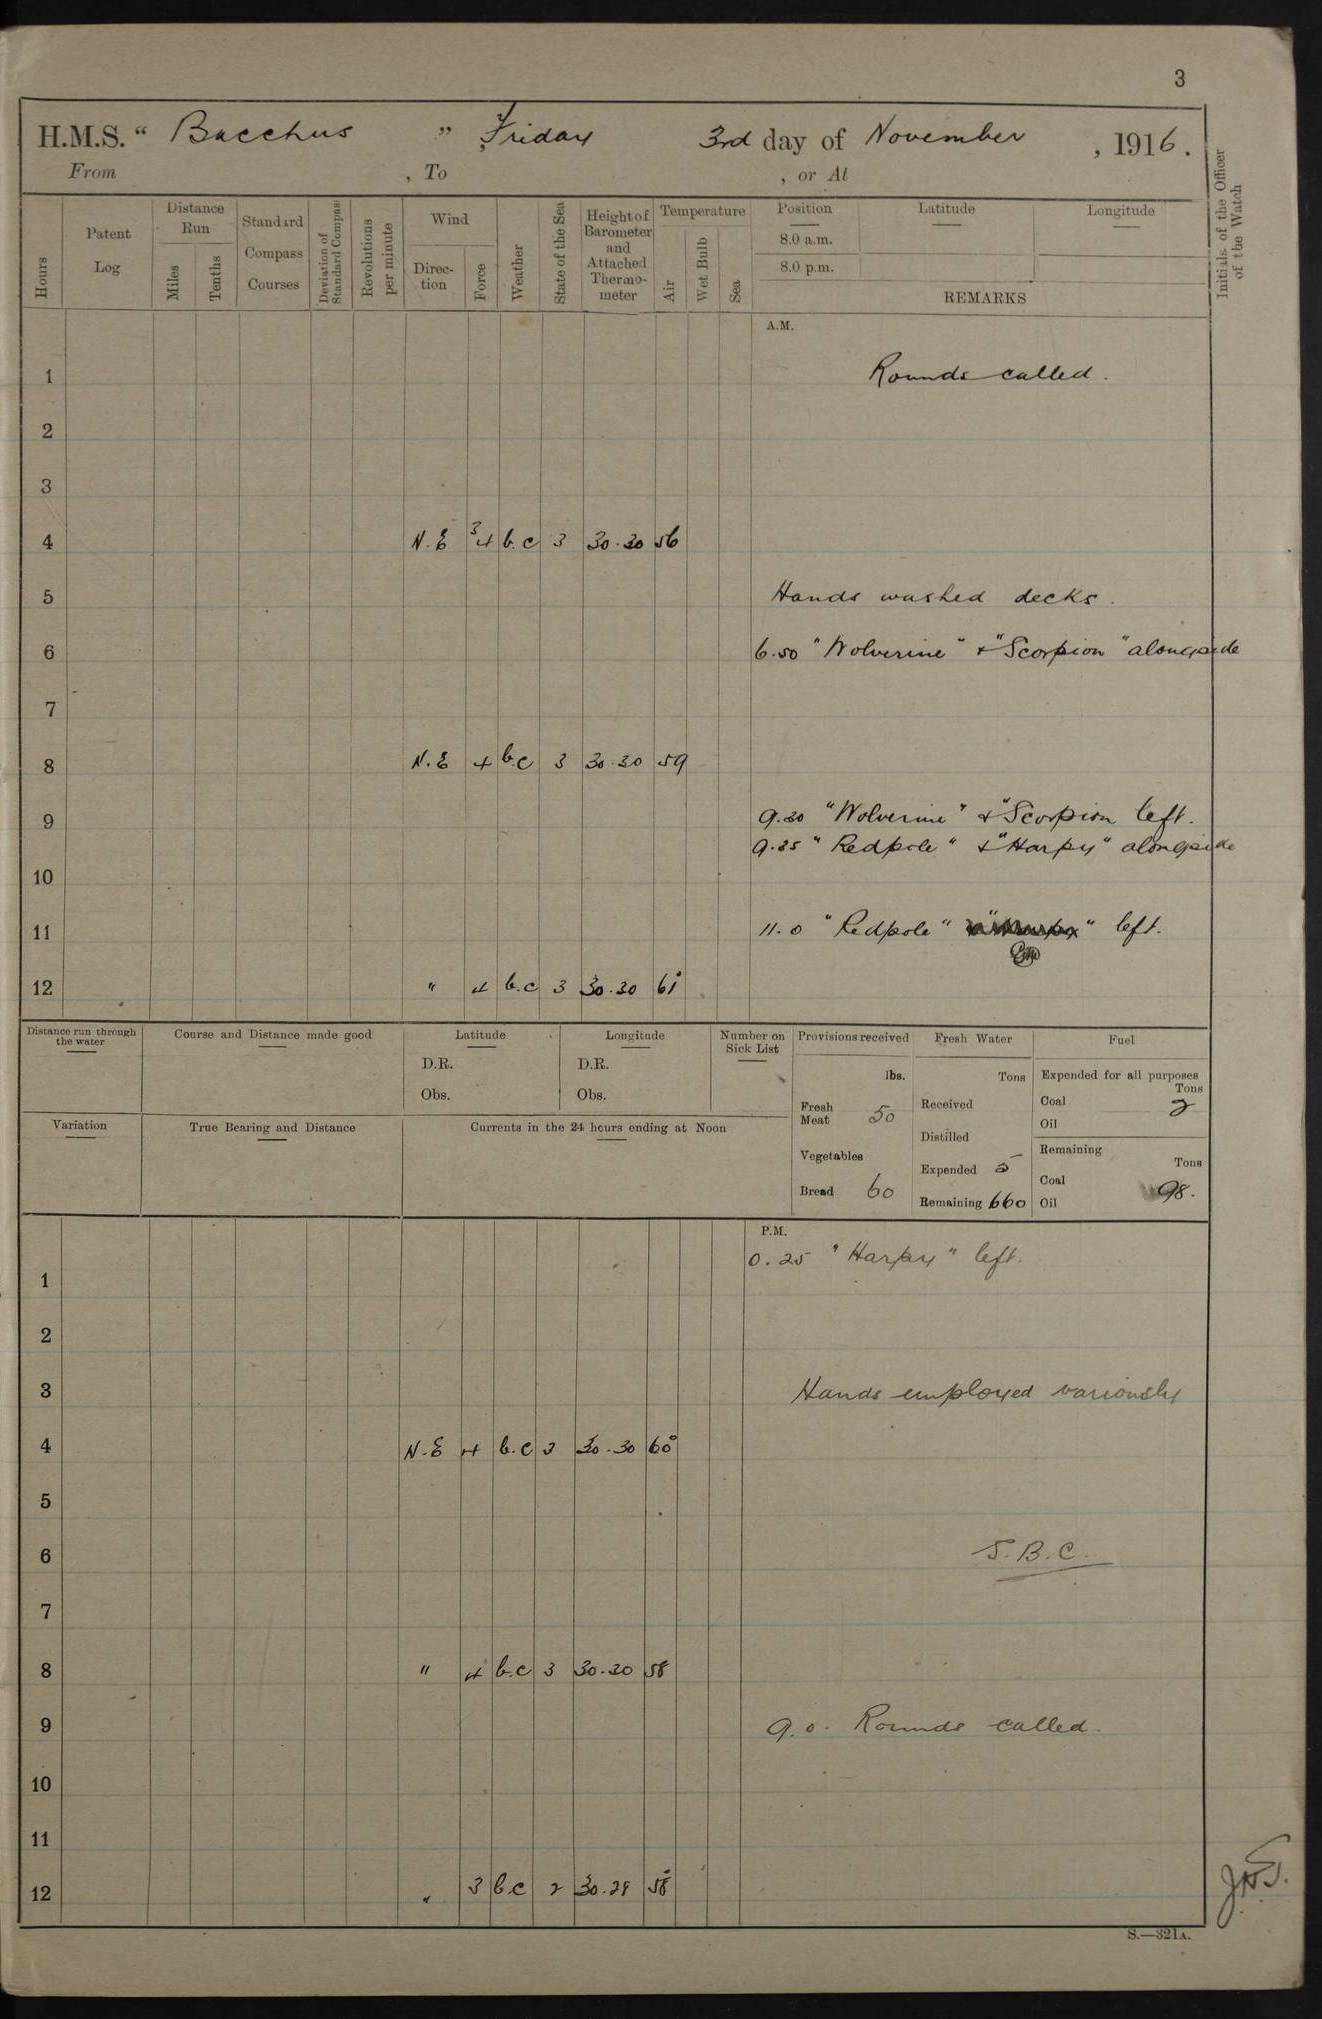 3
H.M.S. “ Bacchus ” Friday 3rd day of November , 1916.
From , To , or At
Hours
Patent Log
Distance Run
Miles
Tenths
Standard Compass Courses
Deviation of Standard Compass
Revolutions per minute
Wind
Direc-tion
Force
Weather
State of the Sea
Height of Barometer and Attached Thermo-meter
Temperature
Air
Wet Bulb
Sea
Position Latitude Longitude
8.0 a.m.
8.0 p.m.
REMARKS
Initials of the Officer of the Watch
A.M.
1 Rounds called.
2
3
4 N.E 3 4 b.c 3 30.30 56
5 Hands washed decks.
6 6.50 "Wolverine" & "Scorpion" alongside
7
8 N.E 4 b.c 3 30.30 59
9 9.20 "Wolverine" & "Scorpion left.
9.25 "Redpole" & "Harpy" alongside
10
11 11.0 "Redpole" " left.
12 " 4 b.c 3 30.30 61°
Distance run through the water
Course and Distance made good
Latitude
D.R.
Obs.
Longitude
D.R.
Obs.
Number on Sick List
Provisions received
lbs.
Fresh Meat 50
Vegetables
Bread 60
Fresh Water
Tons
Received
Distilled
Expended 5
Remaining 660
Fuel
Expended for all purposes
Tons
Coal 2
Oil
Remaining
Tons
Coal 98.
Oil
Variation
True Bearing and Distance
Currents in the 24 hours ending at Noon
P.M.
0.25 "Harpy" left.
1
2
3 Hands employed variously
4 N.E 4 b.c 3 30.30 60°
5
6 S.B.C.
7
8 " 4 b.c 3 30.30 58
9 9.0. Rounds called.
10
11
12 " 3 b.c 2 30.28 58°
S.—321A.